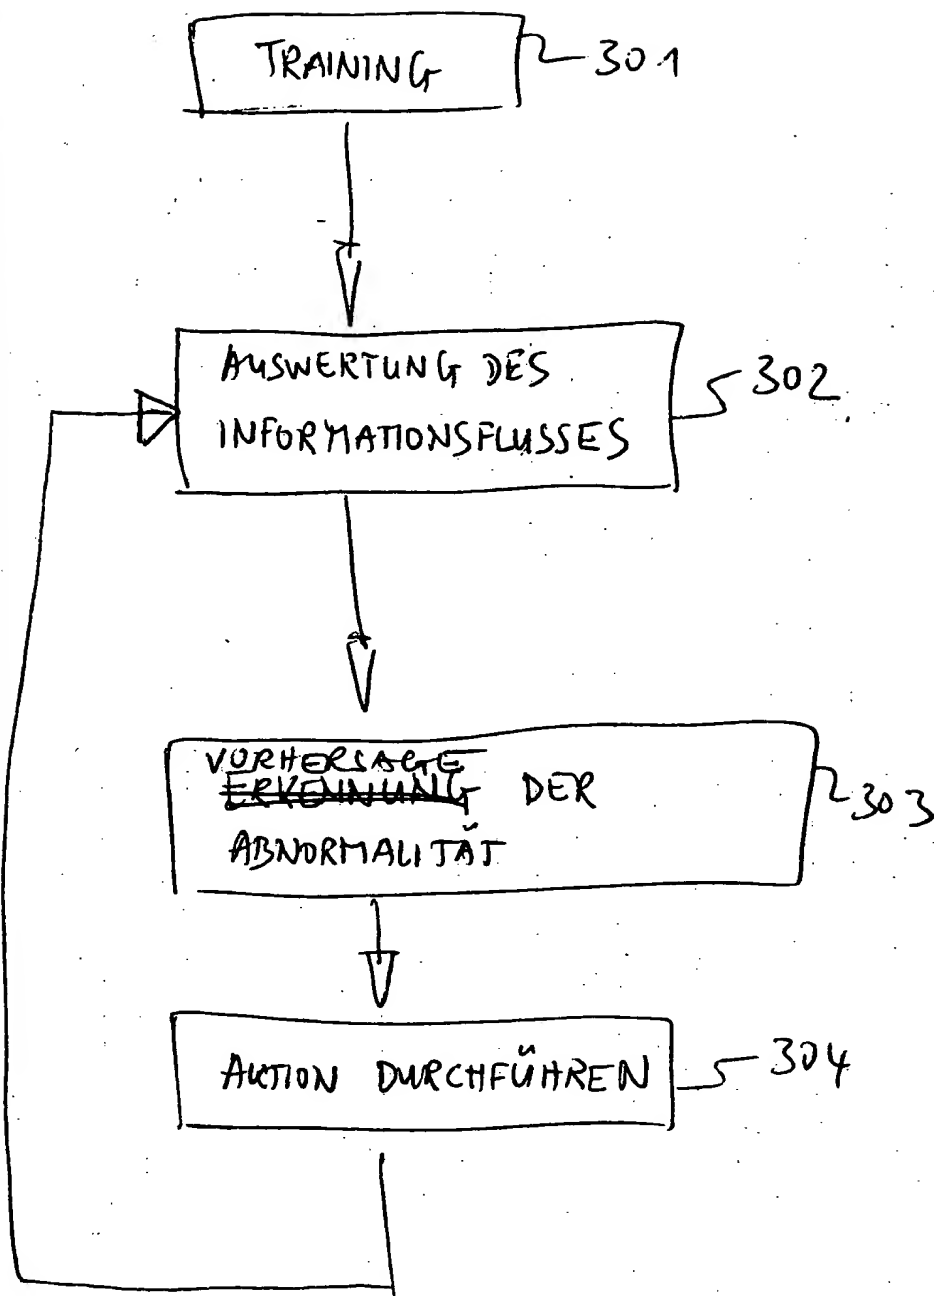 TRAINING
301
AUSWERTUNG DES
302
INFORMATIONSFLUSSES
VORHERSAGE
ERKENNUNG DER
303
ABNORMALITÄT
AKTION DURCHFÜHREN
304